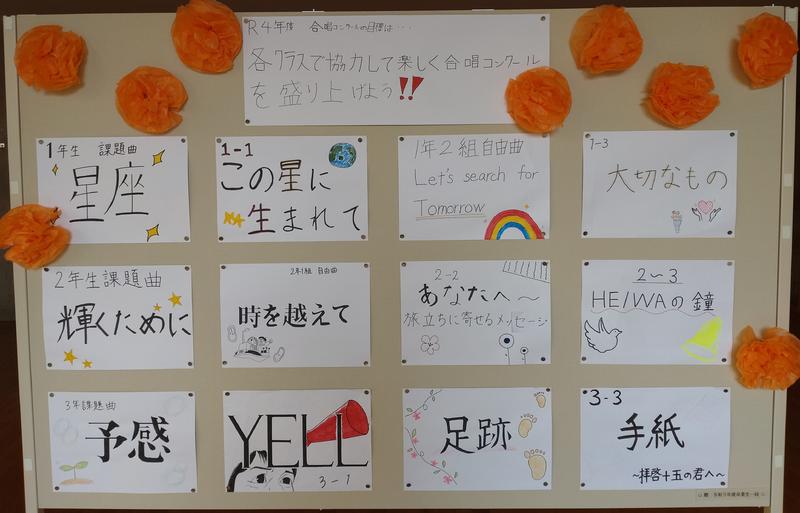 R4年度 合唱コンクールの目標は…
各クラスで協力して楽しく合唱コンクール
を盛り上げよう!!
1年生 課題曲
星座
1-1
この星に
生まれて
1年2組自由曲
Let's search for
Tomorrow
1-3
大切なもの
2年生課題曲
輝くために
2年1組 自由曲
時を越えて
2-2
あなたへ〜
旅立ちに寄せるメッセージ
2〜3
HEIWAの鐘
3年課題曲
予感
YELL
3-1
足跡
3-3
手紙
〜拝啓十五の君へ〜